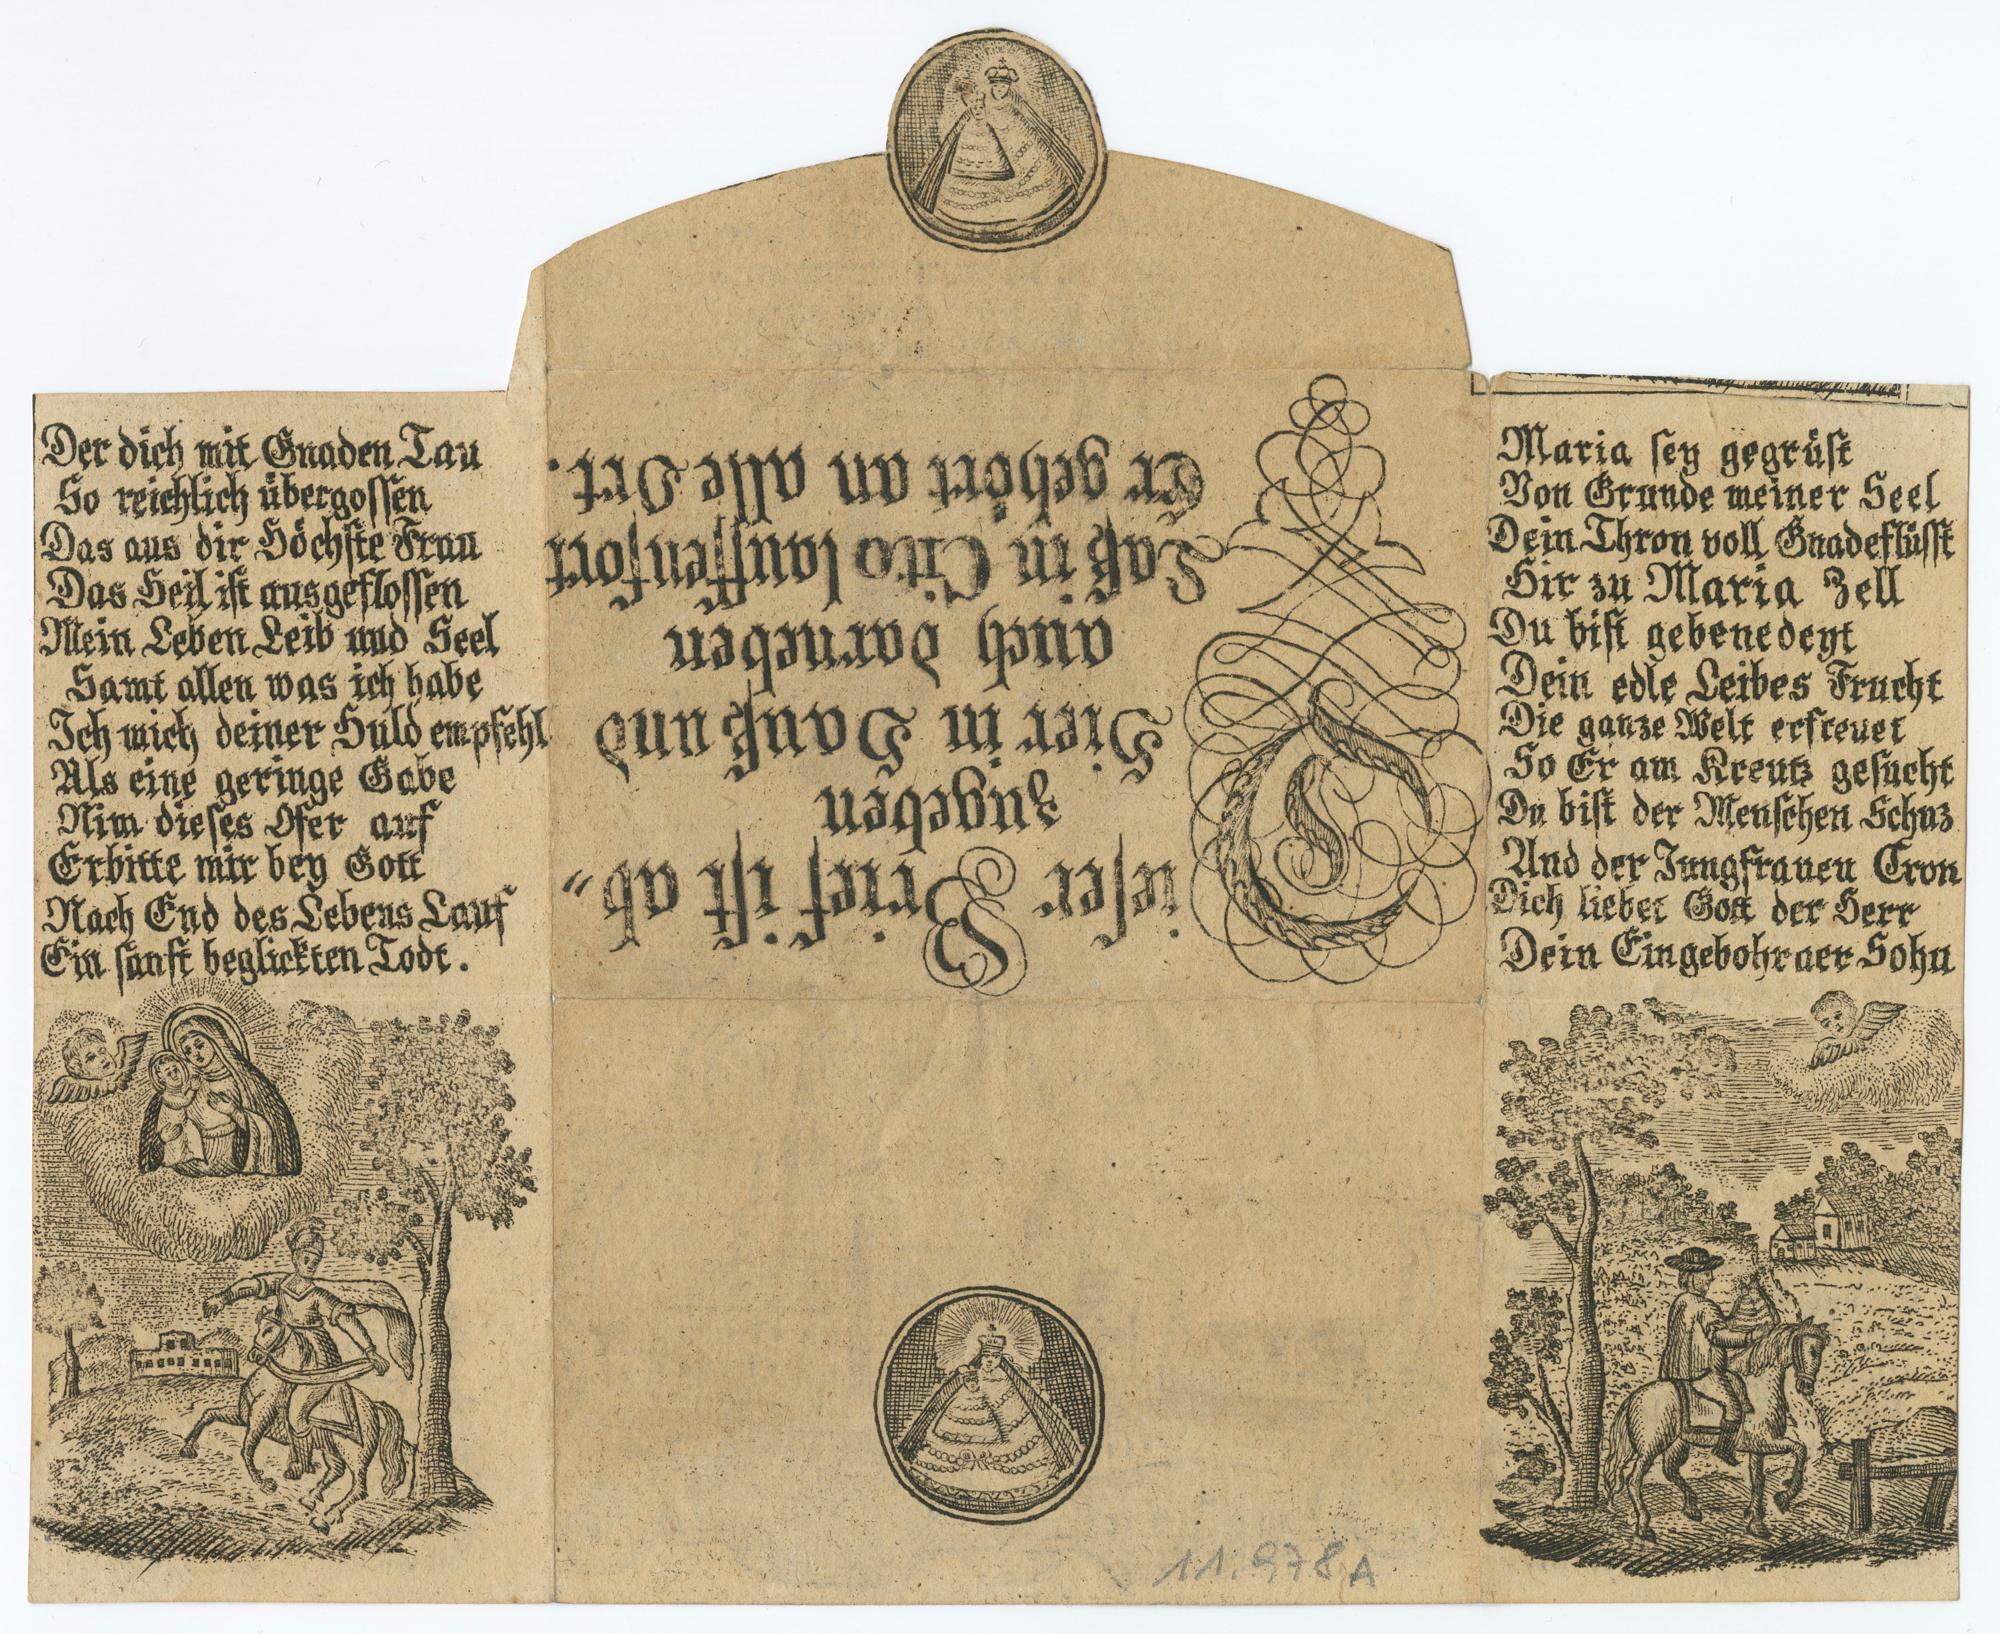 Der dich mit Gnaden Tau
So reichlich übergossen
Das aus dir Höchste Frau
Das Heil ist ausgeflossen
Mein Leben Leib und Seel
Samt allen was ich habe
Ich mich deiner Huld empfehl
Als eine geringe Gabe
Nim dieses Ofer auf
Erbitte mir bey Gott
Nach End des Lebens Lauf
Ein sanft beglickten Todt.
Dieser Brief ist ab„
zugeben
Hier in Hauß und
auch darneben
Laß in Cito lauffen fort
Er gehört an alle Ort.
Maria sey gegrüst
Von Grunde meiner Seel
Dein Thron voll Gnade flüsst
Hir zu Maria Zell
Du bist gebenedeyt
Dein edle Leibes Frucht
Die ganze Welt erfreuet
So Er am Kreutz gesucht
Du bist der Menschen Schuz
Und der Jungfrauen Cron
Dich liebet Gott der Herr
Dein Eingebohrner Sohn
11.978A